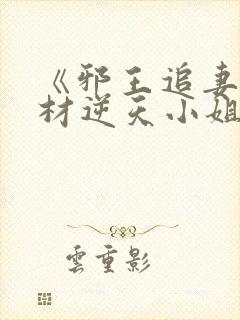 《邪王追妻
材逆天小姐
雲重影